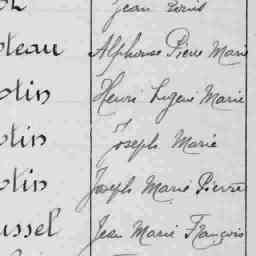 Jean Louis
oteau Alphonse Pierre Marie
otin Henri Eugène Marie
otin Joseph Marie
otin Joseph Marie Pierre
ussel Jean Marie François